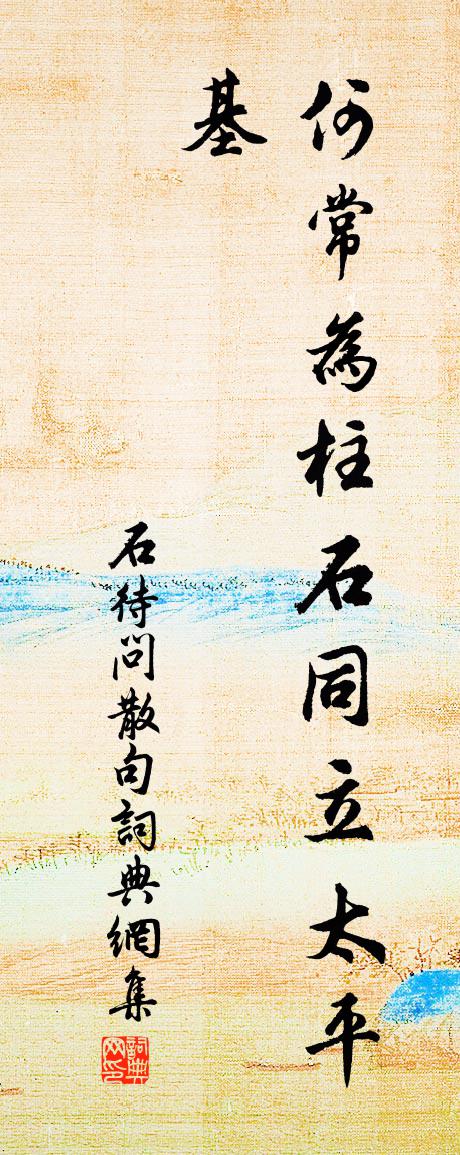 何常為柱石同立太平
基
石待問散句詞典網集
詞典網印